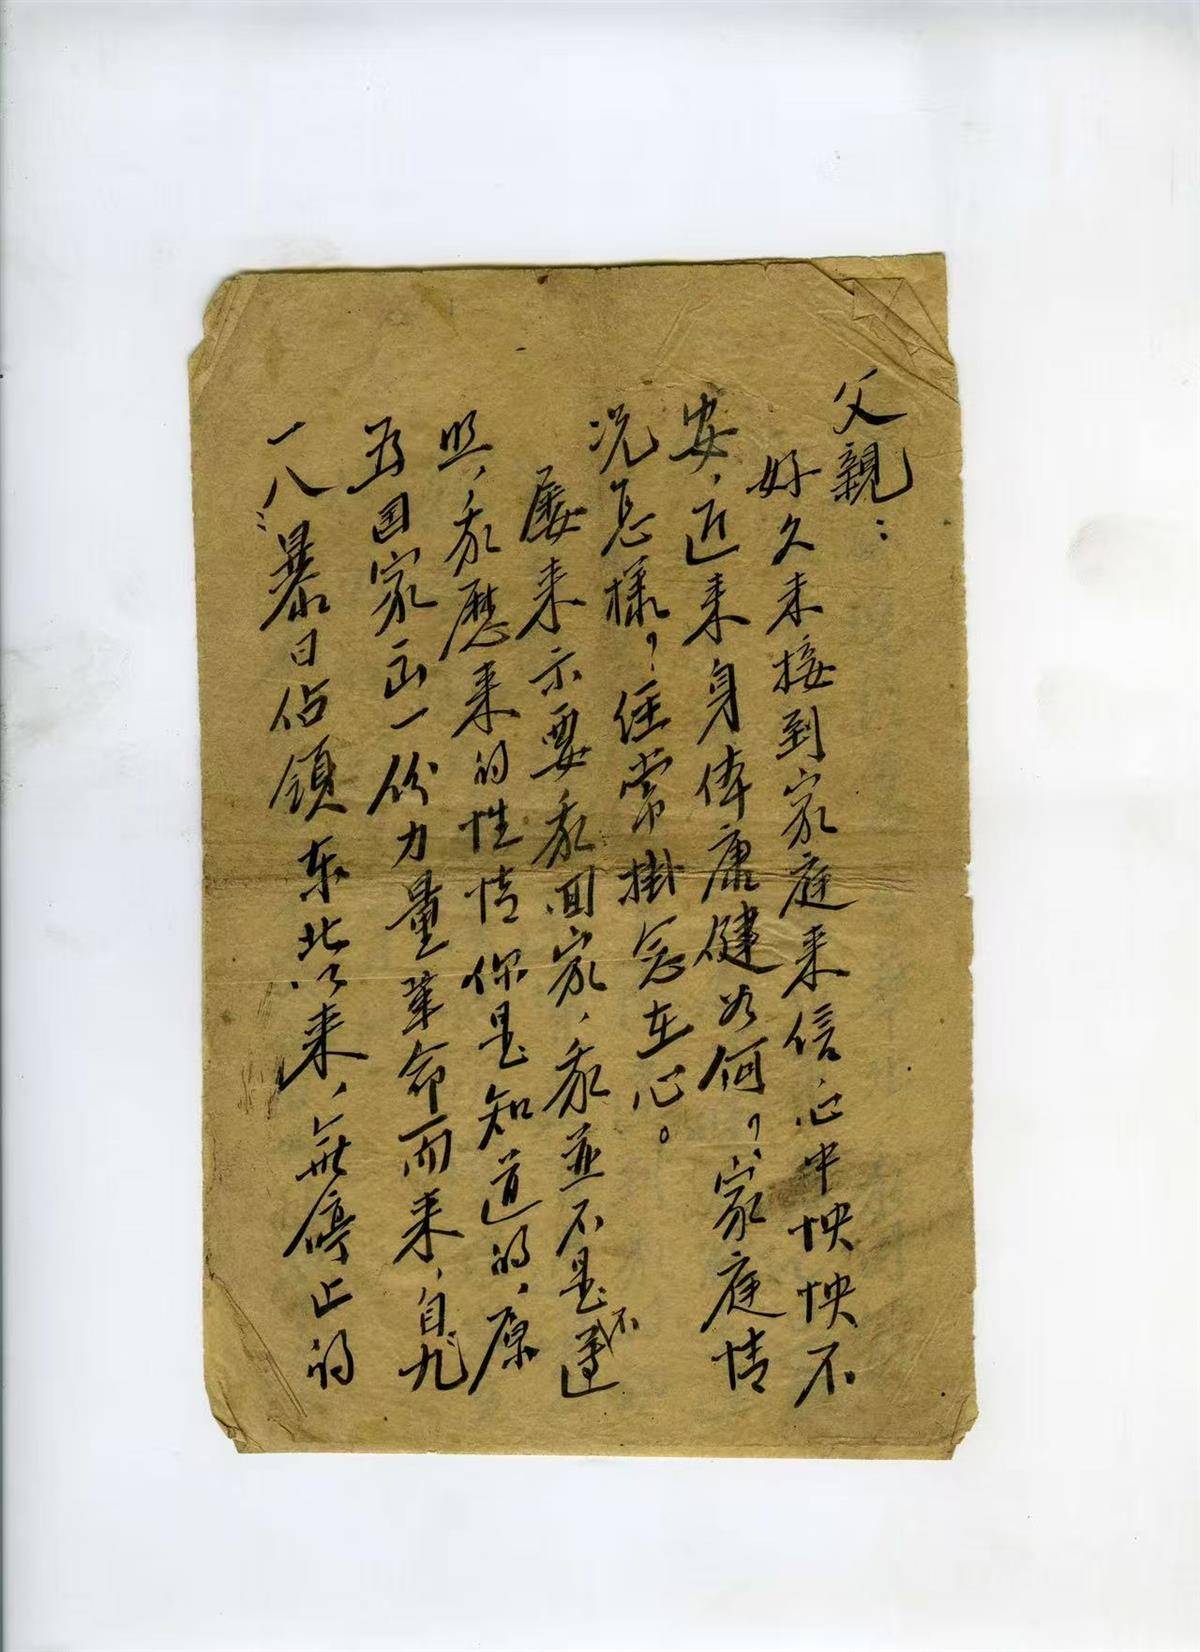 父親：
好久未接到家庭来信，心中怏怏不
安，近来身体康健如何？家庭情
况怎樣？经常掛念在心。
屡来示要我回家，我並不是不遵
照，我歷来的性情你是知道的，原
为国家出一份力量革命而来，自“九
一八”暴日佔领东北以来，無停止的